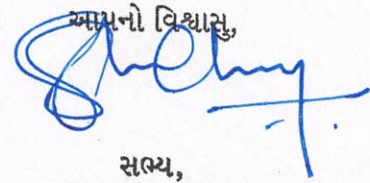 આપનો વિશ્વાસુ,
સભ્ય,